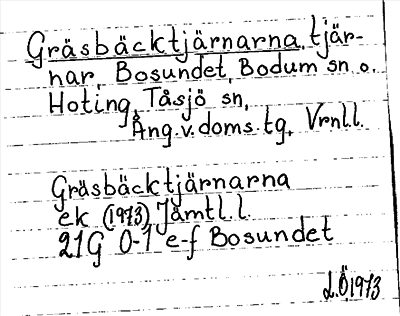 Gräsbäcktjärnarna, tjär-
nar, Bosundet, Bodum sn o.
Hoting, Tåsjö sn,
Ång.v.doms.tg, Vrnl.l.
Gräsbäcktjärnarna
ek (1973) Jämtl.l.
21G 0-1 e-f Bosundet
L.Ö.1973